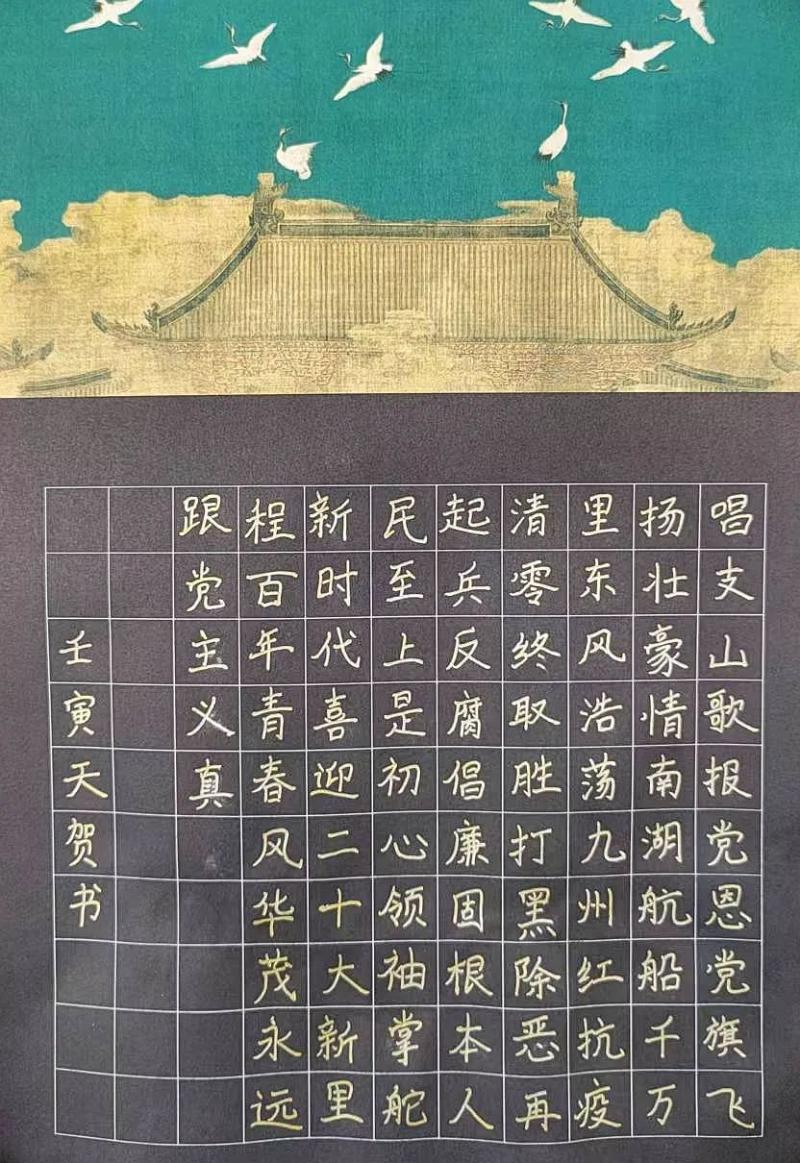 唱支山歌报党恩党旗飞
扬壮豪情南湖航船千万
里东风浩荡九州红抗疫
清零终取胜打黑除恶再
起兵反腐倡廉固根本人
民至上是初心领袖掌舵
新时代喜迎二十大新里
程百年青春风华茂永远
跟党主义真
壬寅天贺书